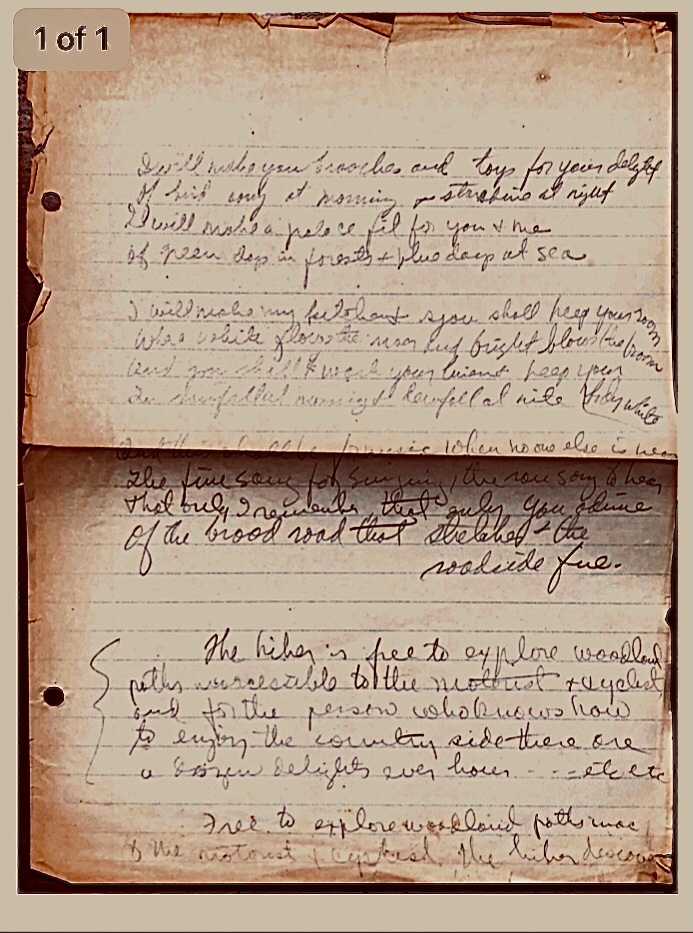 1 of 1
I will make you brooches and toys for your delight
Of bird song at morning & starshine at night
I will make a palace fit for you & me
of green days in forests & blue days at sea
I will make my kitchen & you shall keep your room
Where white flows the river and bright blows the broom
And you shall wash your linen & keep your
body white
In rainfall at morning & dewfall at nite
And this shall be for music when no one else is near
The fine song for singing, the rare song to hear
That only I remember, that only you admire
Of the broad road that stretches & the
roadside fire.
The hiker is free to explore woodland
paths inaccessible to the motorist & cyclist
and for the person who knows how
to enjoy the country side there are
a dozen delights every hour - - - etc etc
Free to explore woodland paths inac
to the motorist & cyclist, the hiker discover